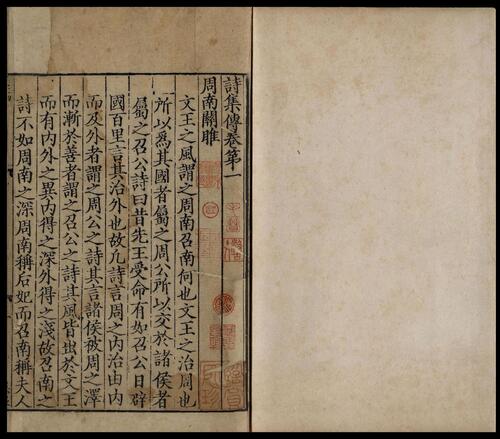 詩集傳卷第一
周南關雎
文王之風謂之周南召南何也文王之治周也
所以爲其國者屬之周公所以交於諸侯者
屬之召公詩曰昔先王受命有如召公日辟
國百里言其治外也故凢詩言周之内治由内
而及外者謂之周公之詩其言諸侯被周之澤
而漸於善者謂之召公之詩其風皆出於文王
而有内外之異内得之深外得之淺故召南之
詩不如周南之深周南稱后妃而召南稱夫人